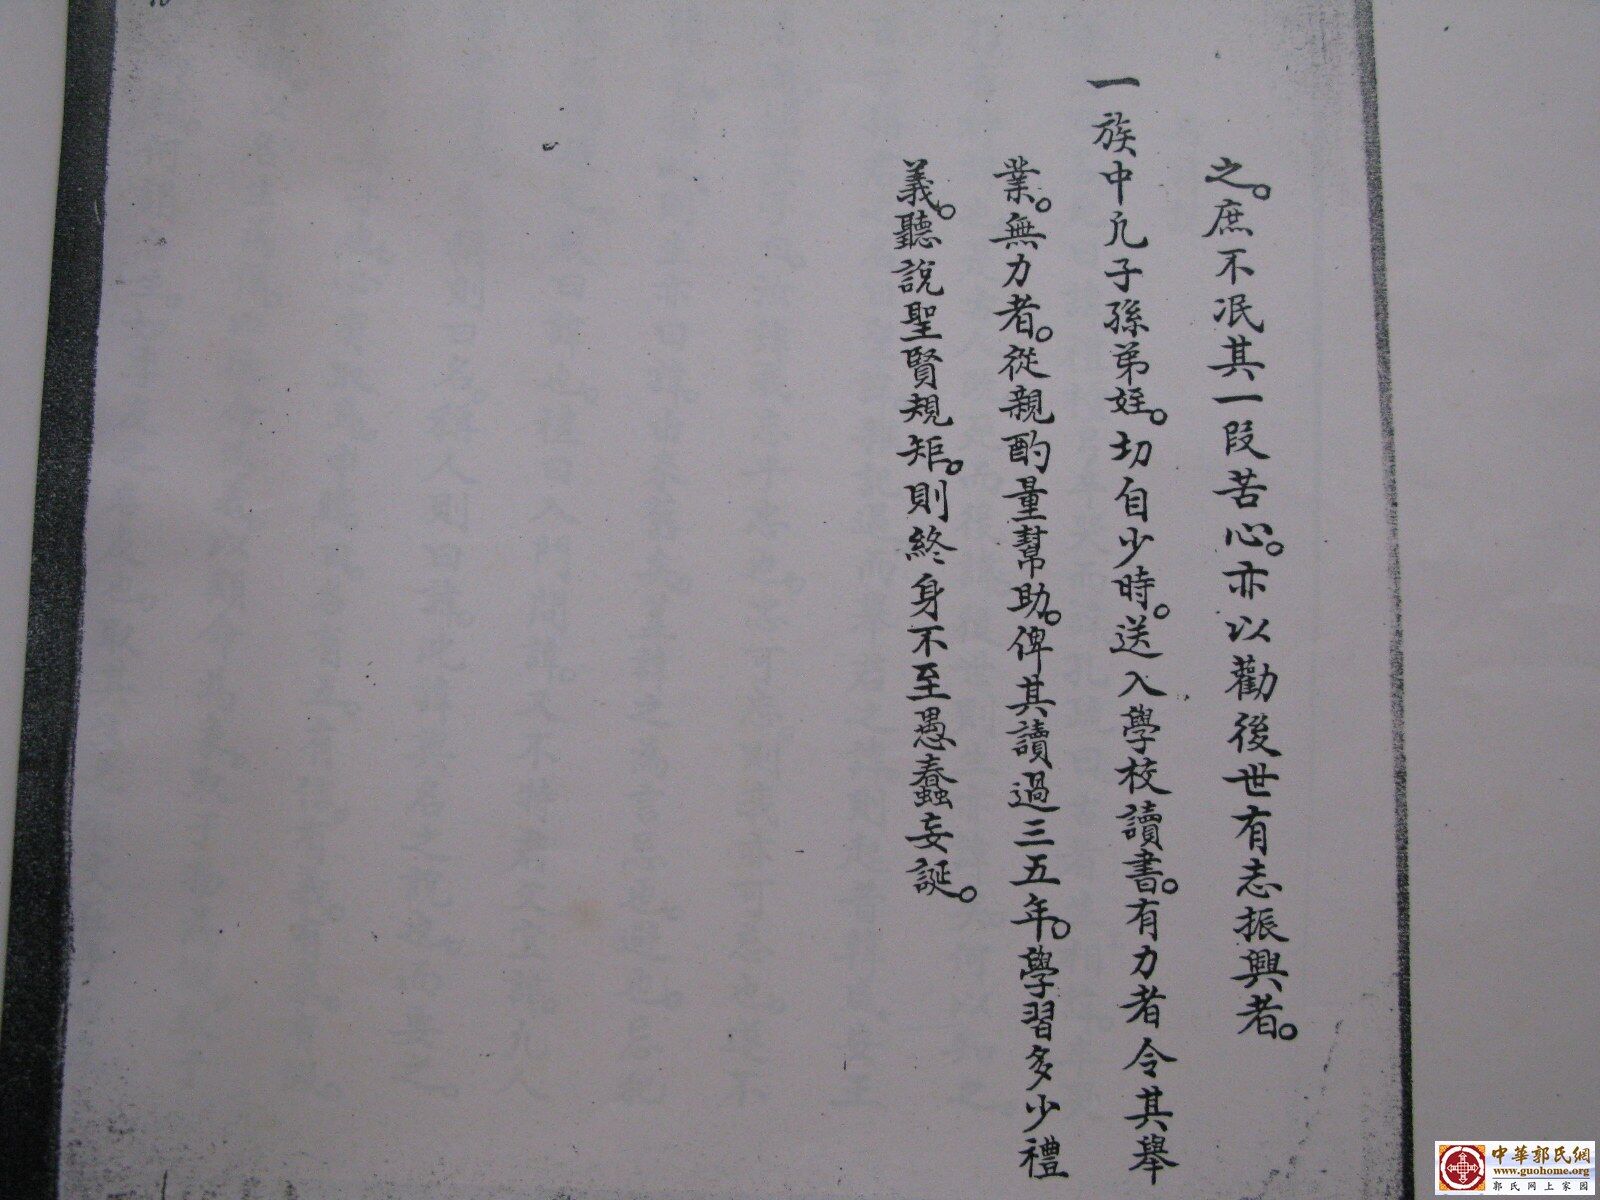 之。庶不泯其一段苦心。亦以勸後世有志振興者。
一族中凡子孫弟姪。切自少時。送入學校讀書。有力者令其舉
業。無力者。從親酌量幫助。俾其讀過三五年。學習多少禮
義。聽說聖賢規矩。則終身不至愚蠢妄誕。
中華郭氏網
www.guohome.org
郭氏网上家园